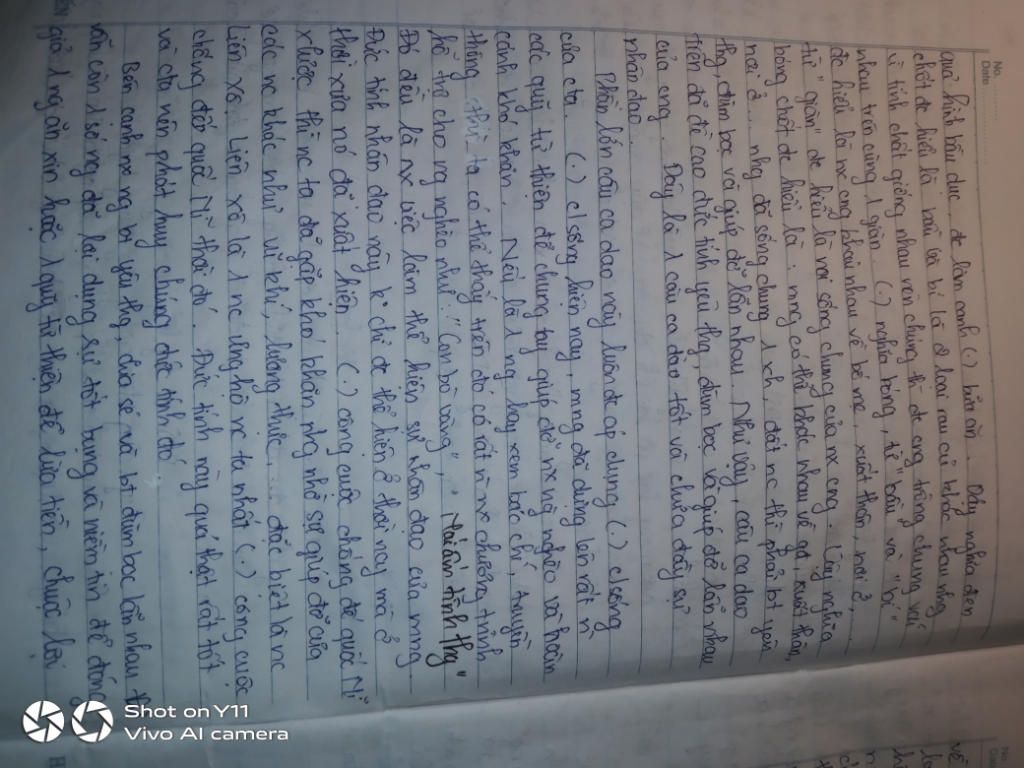 No.
Date
quả hình bầu dục, đc làm canh (.) bữa ăn. Dãy nghĩa đen
chốt đc hiểu là bầu và bí là 2 loại rau củ khác nhau nhg
vì tính chất giống nhau nên chúng thì đc cng trồng chung với
nhau trên cùng 1 giàn. (.) nghĩa bóng, từ bầu và "bí"
đc hiểu là nx cng khác nhau về bề mẹ, xuất thân, nơi ở,
từ "giàn" đc hiểu là nơi sống chung của nx cng. Vậy nghĩa
bóng chốt đc hiểu là: mng có thể khác nhau về gđ, xuất thân,
nơi ở... nhg đã sống chung 1 xh, đất nc thì phải bt yêu
thg, đùm bọc và giúp đỡ lẫn nhau. Như vậy, câu ca dao
trên đã đề cao đức tính yêu thg, đùm bọc và giúp đỡ lẫn nhau
của cng. Đây là 1 câu ca dao tốt và chứa đầy sự
nhân đạo.
Phần lớn câu ca dao này luôn đc áp dụng (.) c/sống
của cta. (.) c/sống hiện nay, mng đã dựng lên rất n`
các quỹ từ thiện để chung tay giúp đỡ nx ng nghèo và hoàn
cảnh khó khăn. Nếu là 1 ng hay xem báo chí, truyền
thông thì ta có thể thấy trên đó có rất n` nx chương trình
hỗ trợ cho ng nghèo như: "Con bò vàng", "Mái ấm tình thg"
Đó đều là nx việc làm thể hiện sự nhân đạo của mng
Đức tính nhân đạo này k chỉ đc thể hiện ở thời nay mà ở
thời xưa nó đã xuất hiện (.) công cuộc chống đế quốc Mĩ
xlược thì nc ta đã gặp khó khăn nhg nhờ sự giúp đỡ của
các nc khác như vũ khí, lương thực,... đặc biệt là nc
Liên xô. Liên xô là 1 nc ủng hộ nc ta nhất (.) công cuộc
chống đế quốc Mĩ thời đó. Đức tính này quả thật rất tốt
và cta nên phát huy chúng đức tính đó
Bên cạnh nx ng bt yêu thg, chia sẻ và bt đùm bọc lẫn nhau th
vẫn còn 1 số ng đã lại dụng sự tốt bụng và niềm tin để đóng
giả 1 ng ăn xin hoặc 1 quỹ từ thiện để lừa tiền, chuộc lợi
Shot on Y11
Vivo AI camera